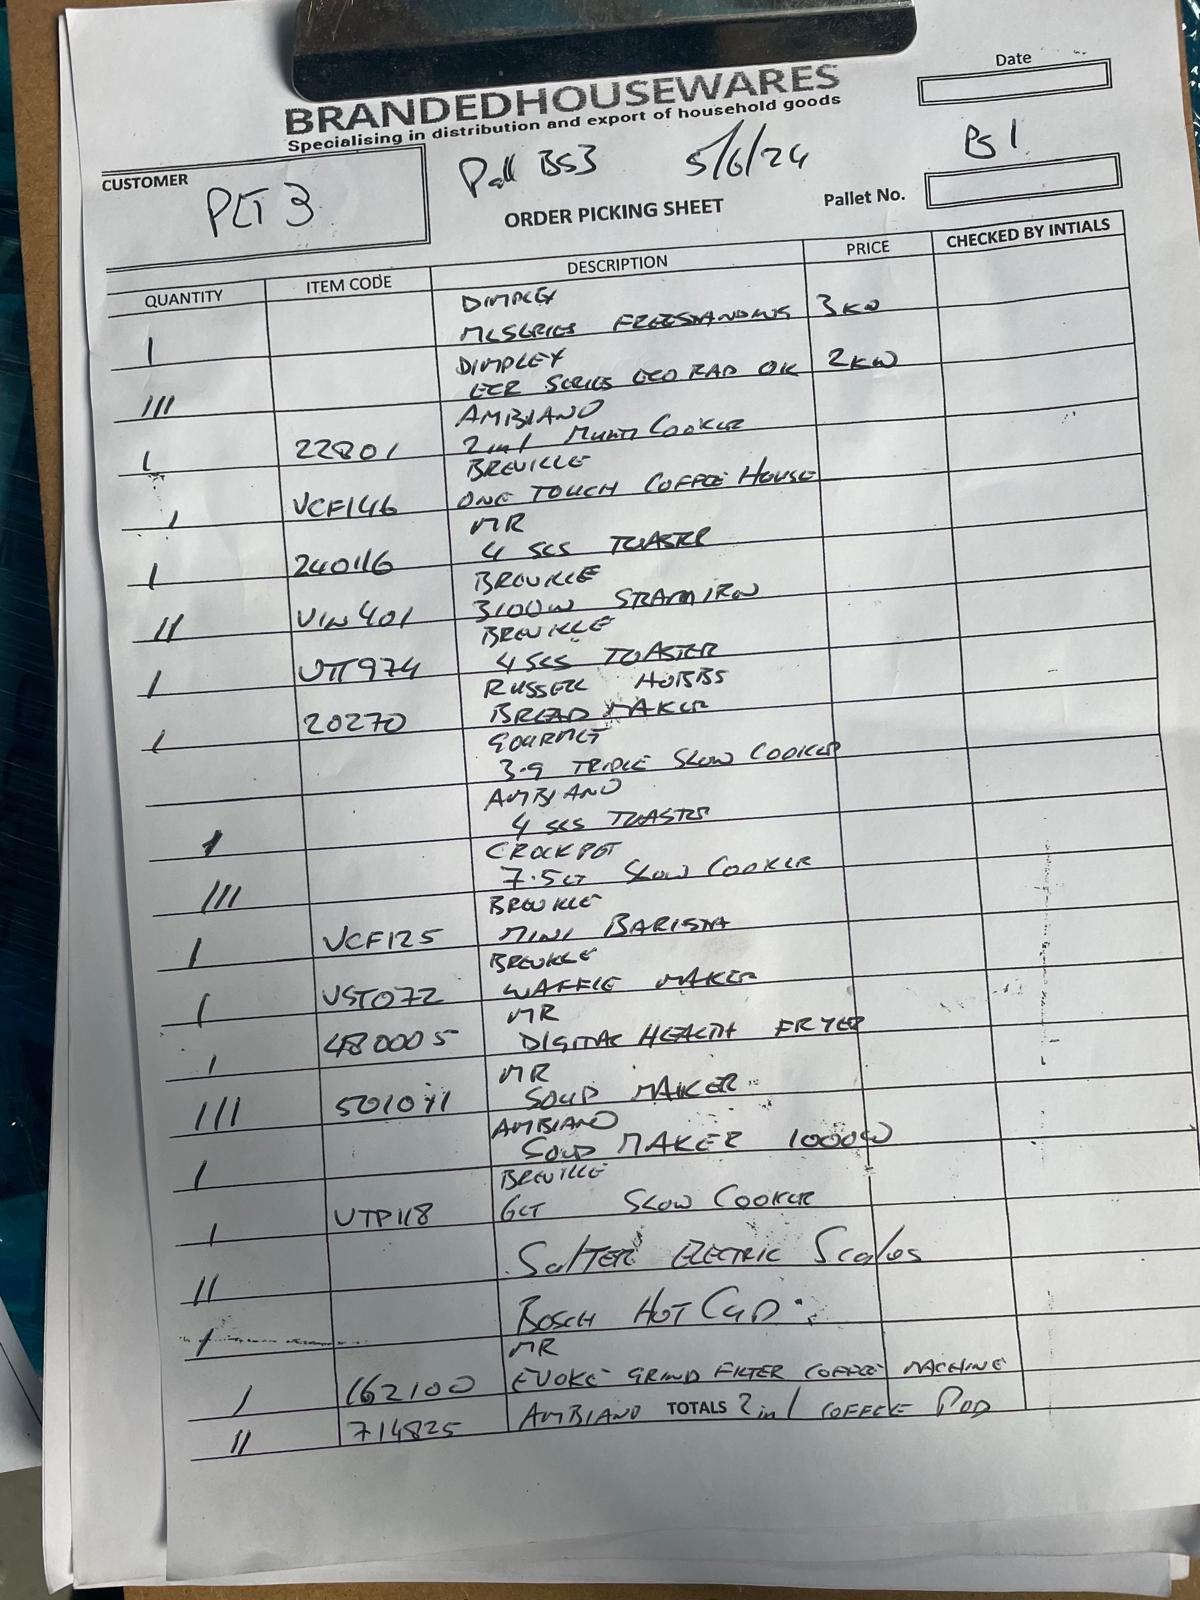 BRANDEDHOUSEWARES
Specialising in distribution and export of household goods
Date
CUSTOMER
PLT 3
Pall BS3 5/6/24
BS1
ORDER PICKING SHEET
Pallet No.
QUANTITY ITEM CODE DESCRIPTION PRICE CHECKED BY INTIALS
DIMPLEX
I MLSERIES FREESTANDING 3KW
DIMPLEX
III ECR SERIES ECO RAD OIL 2KW
AMBIANO
I 22801 2in1 MULTI COOKER
BREVILLE
I VCF146 ONE TOUCH COFFEE HOUSE
MR
I 240116 4 SCS TOASTER
BREVILLE
II VIN401 3100W STEAM IRON
BREVILLE
I VTT974 4 SCS TOASTER
RUSSELL HOBBS
I 20270 BREAD MAKER
GOURMET
3.9 TRIPLE SLOW COOKER
AMBIANO
I 4 SCS TOASTER
CROCKPOT
III 7.5LT SLOW COOKER
BREVILLE
I VCF125 MINI BARISTA
BREVILLE
I VST072 WAFFLE MAKER
MR
I 480005 DIGITAL HEALTH FRYER
MR
III SOUP MAKER
AMBIANO
I SOUP MAKER 1000W
BREVILLE
I VTP118 6LT SLOW COOKER
II SALTER ELECTRIC Scales
I BOSCH HOT CUP
MR
I 162100 EVOKE GRIND FILTER COFFEE MACHINE
II 714825 AMBIANO TOTALS 2in1 COFFEE POD